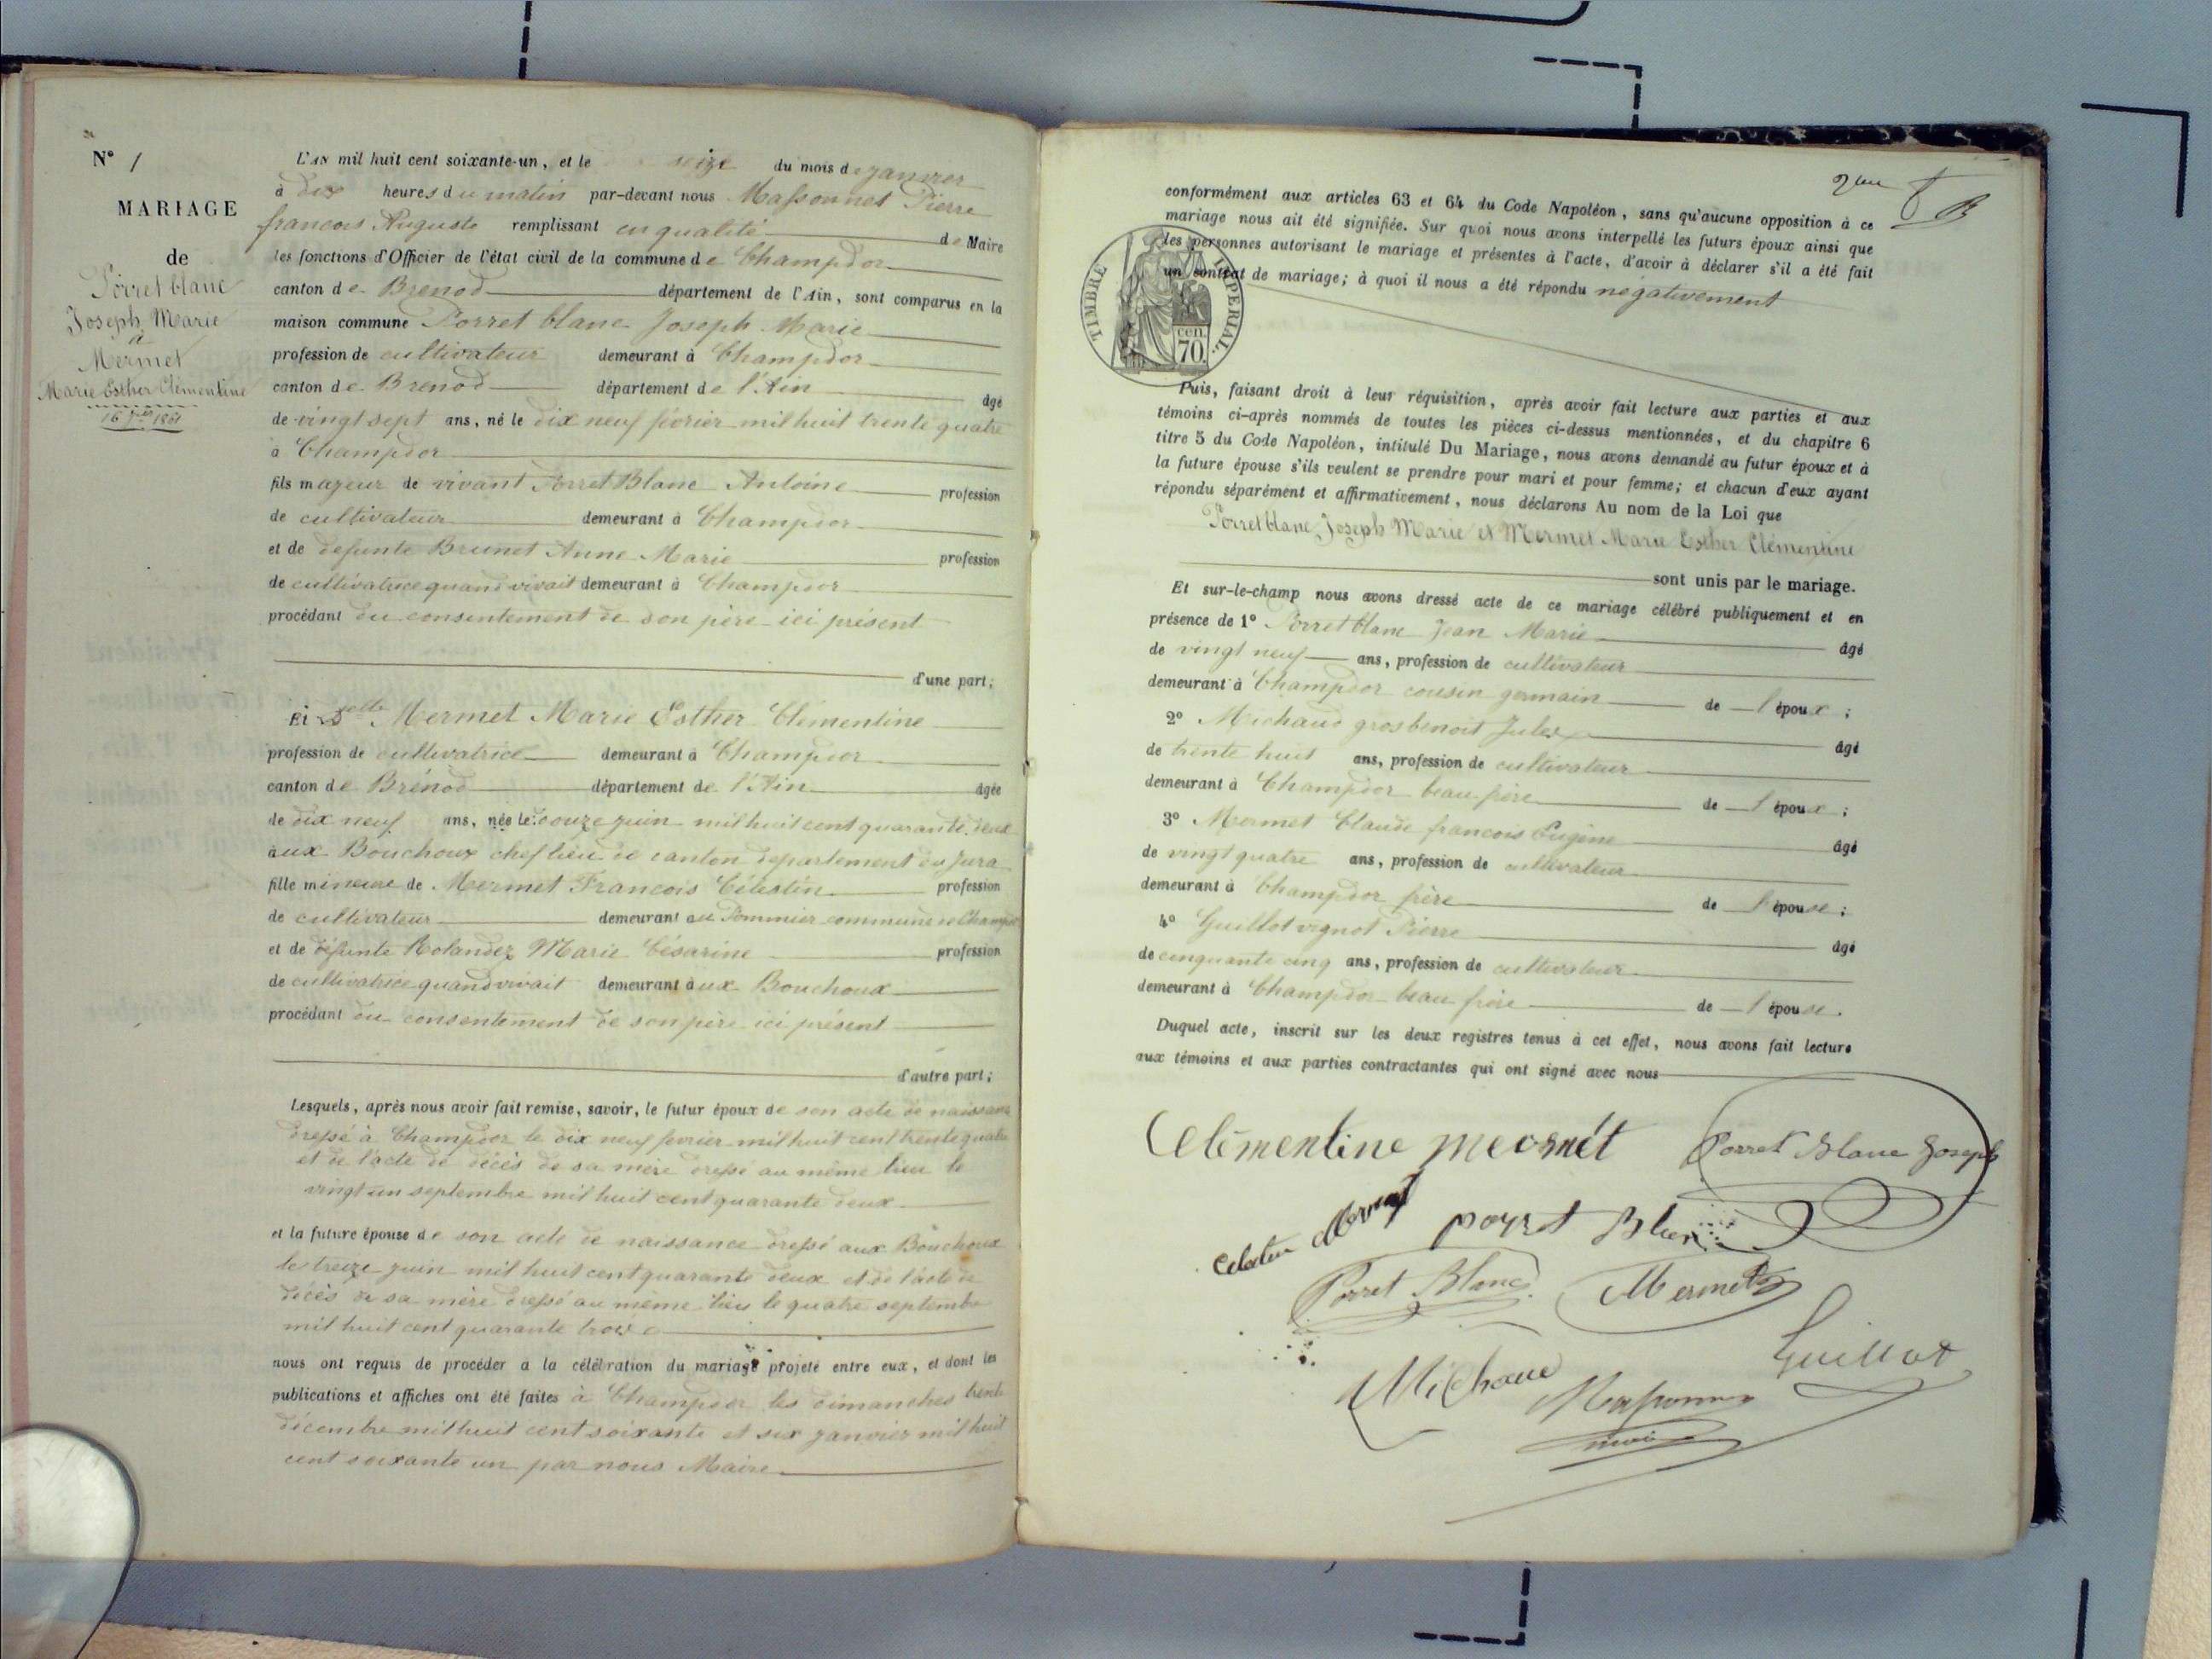 N° 1
MARIAGE
de
Porret blanc
Joseph Marie
à
Mermet
Marie Esther Clémentine
16 jer 1861
L'AN mil huit cent soixante-un, et le seize du mois de janvier
à dix heures du matin par-devant nous Massonnet Pierre
francois Auguste remplissant en qualité de Maire
les fonctions d'Officier de l'état civil de la commune de Champdor
canton de Brenod département de l'Ain, sont comparus en la
maison commune Porret blanc Joseph Marie
profession de cultivateur demeurant à Champdor
canton de Brenod département de l'Ain âgé
de vingt sept ans, né le dix neuf février mil huit trente quatre
à Champdor
fils majeur de vivant Porret Blanc Antoine profession
de cultivateur demeurant à Champdor
et de defunte Brunet Anne Marie profession
de cultivatrice quand vivait demeurant à Champdor
procédant du consentement de son père ici présent
d'une part;
Et Delle Mermet Marie Esther Clémentine
profession de cultivatrice demeurant à Champdor
canton de Brénod département de l'Ain âgée
de dix neuf ans, née le douze juin mil huit cent quarante deux
aux Bouchoux chef lieu de canton departement du Jura
fille mineure de Mermet Francois Célestin profession
de cultivateur demeurant au Pommier commune de Champdor
et de défunte Rolandez Marie Césarine profession
de cultivatrice quand vivait demeurant aux Bouchoux
procédant du consentement de son père ici présent
d'autre part;
Lesquels, après nous avoir fait remise, savoir, le futur époux de son acte de naissance
dressé à Champdor le dix neuf février mil huit cent trente quatre
et de l'acte de décès de sa mère dressé au même lieu le
vingt un septembre mil huit cent quarante deux
et la future épouse de son acte de naissance dressé aux Bouchoux
le treize juin mil huit cent quarante deux et de l'acte de
décès de sa mère dressé au même lieu le quatre septembre
mil huit cent quarante trois
nous ont requis de procéder à la célébration du mariage projeté entre eux, et dont les
publications et affiches ont été faites à Champdor les dimanches trente
décembre mil huit cent soixante et six janvier mil huit
cent soixante un par nous Maire
2eme
B
conformément aux articles 63 et 64 du Code Napoléon, sans qu'aucune opposition à ce
mariage nous ait été signifiée. Sur quoi nous avons interpellé les futurs époux ainsi que
les personnes autorisant le mariage et présentes à l'acte, d'avoir à déclarer s'il a été fait
un contrat de mariage; à quoi il nous a été répondu négativement
TIMBRE IMPERIAL.
cen.
70.
Puis, faisant droit à leur réquisition, après avoir fait lecture aux parties et aux
témoins ci-après nommés de toutes les pièces ci-dessus mentionnées, et du chapitre 6
titre 5 du Code Napoléon, intitulé Du Mariage, nous avons demandé au futur époux et à
la future épouse s'ils veulent se prendre pour mari et pour femme; et chacun d'eux ayant
répondu séparément et affirmativement, nous déclarons Au nom de la Loi que
Porret blanc Joseph Marie et Mermet Marie Esther Clémentine
sont unis par le mariage.
Et sur-le-champ nous avons dressé acte de ce mariage célébré publiquement et en
présence de 1° Porret blanc Jean Marie âgé
de vingt neuf ans, profession de cultivateur
demeurant à Champdor cousin germain de l'époux;
2° Michaud grosbenoit Jules âgé
de trente huit ans, profession de cultivateur
demeurant à Champdor beau frère de l'époux;
3° Mermet Claude francois Eugène âgé
de vingt quatre ans, profession de cultivateur
demeurant à Champdor frère de l'épouse;
4° Guillot vignot Pierre âgé
de cinquante cinq ans, profession de cultivateur
demeurant à Champdor beau frère de l'épouse.
Duquel acte, inscrit sur les deux registres tenus à cet effet, nous avons fait lecture
aux témoins et aux parties contractantes qui ont signé avec nous
Clémentine Mermét Porret Blanc Joseph
Mermet porret Blanc
Porret Blanc Mermet
Guillot
Michaud
Massonnet